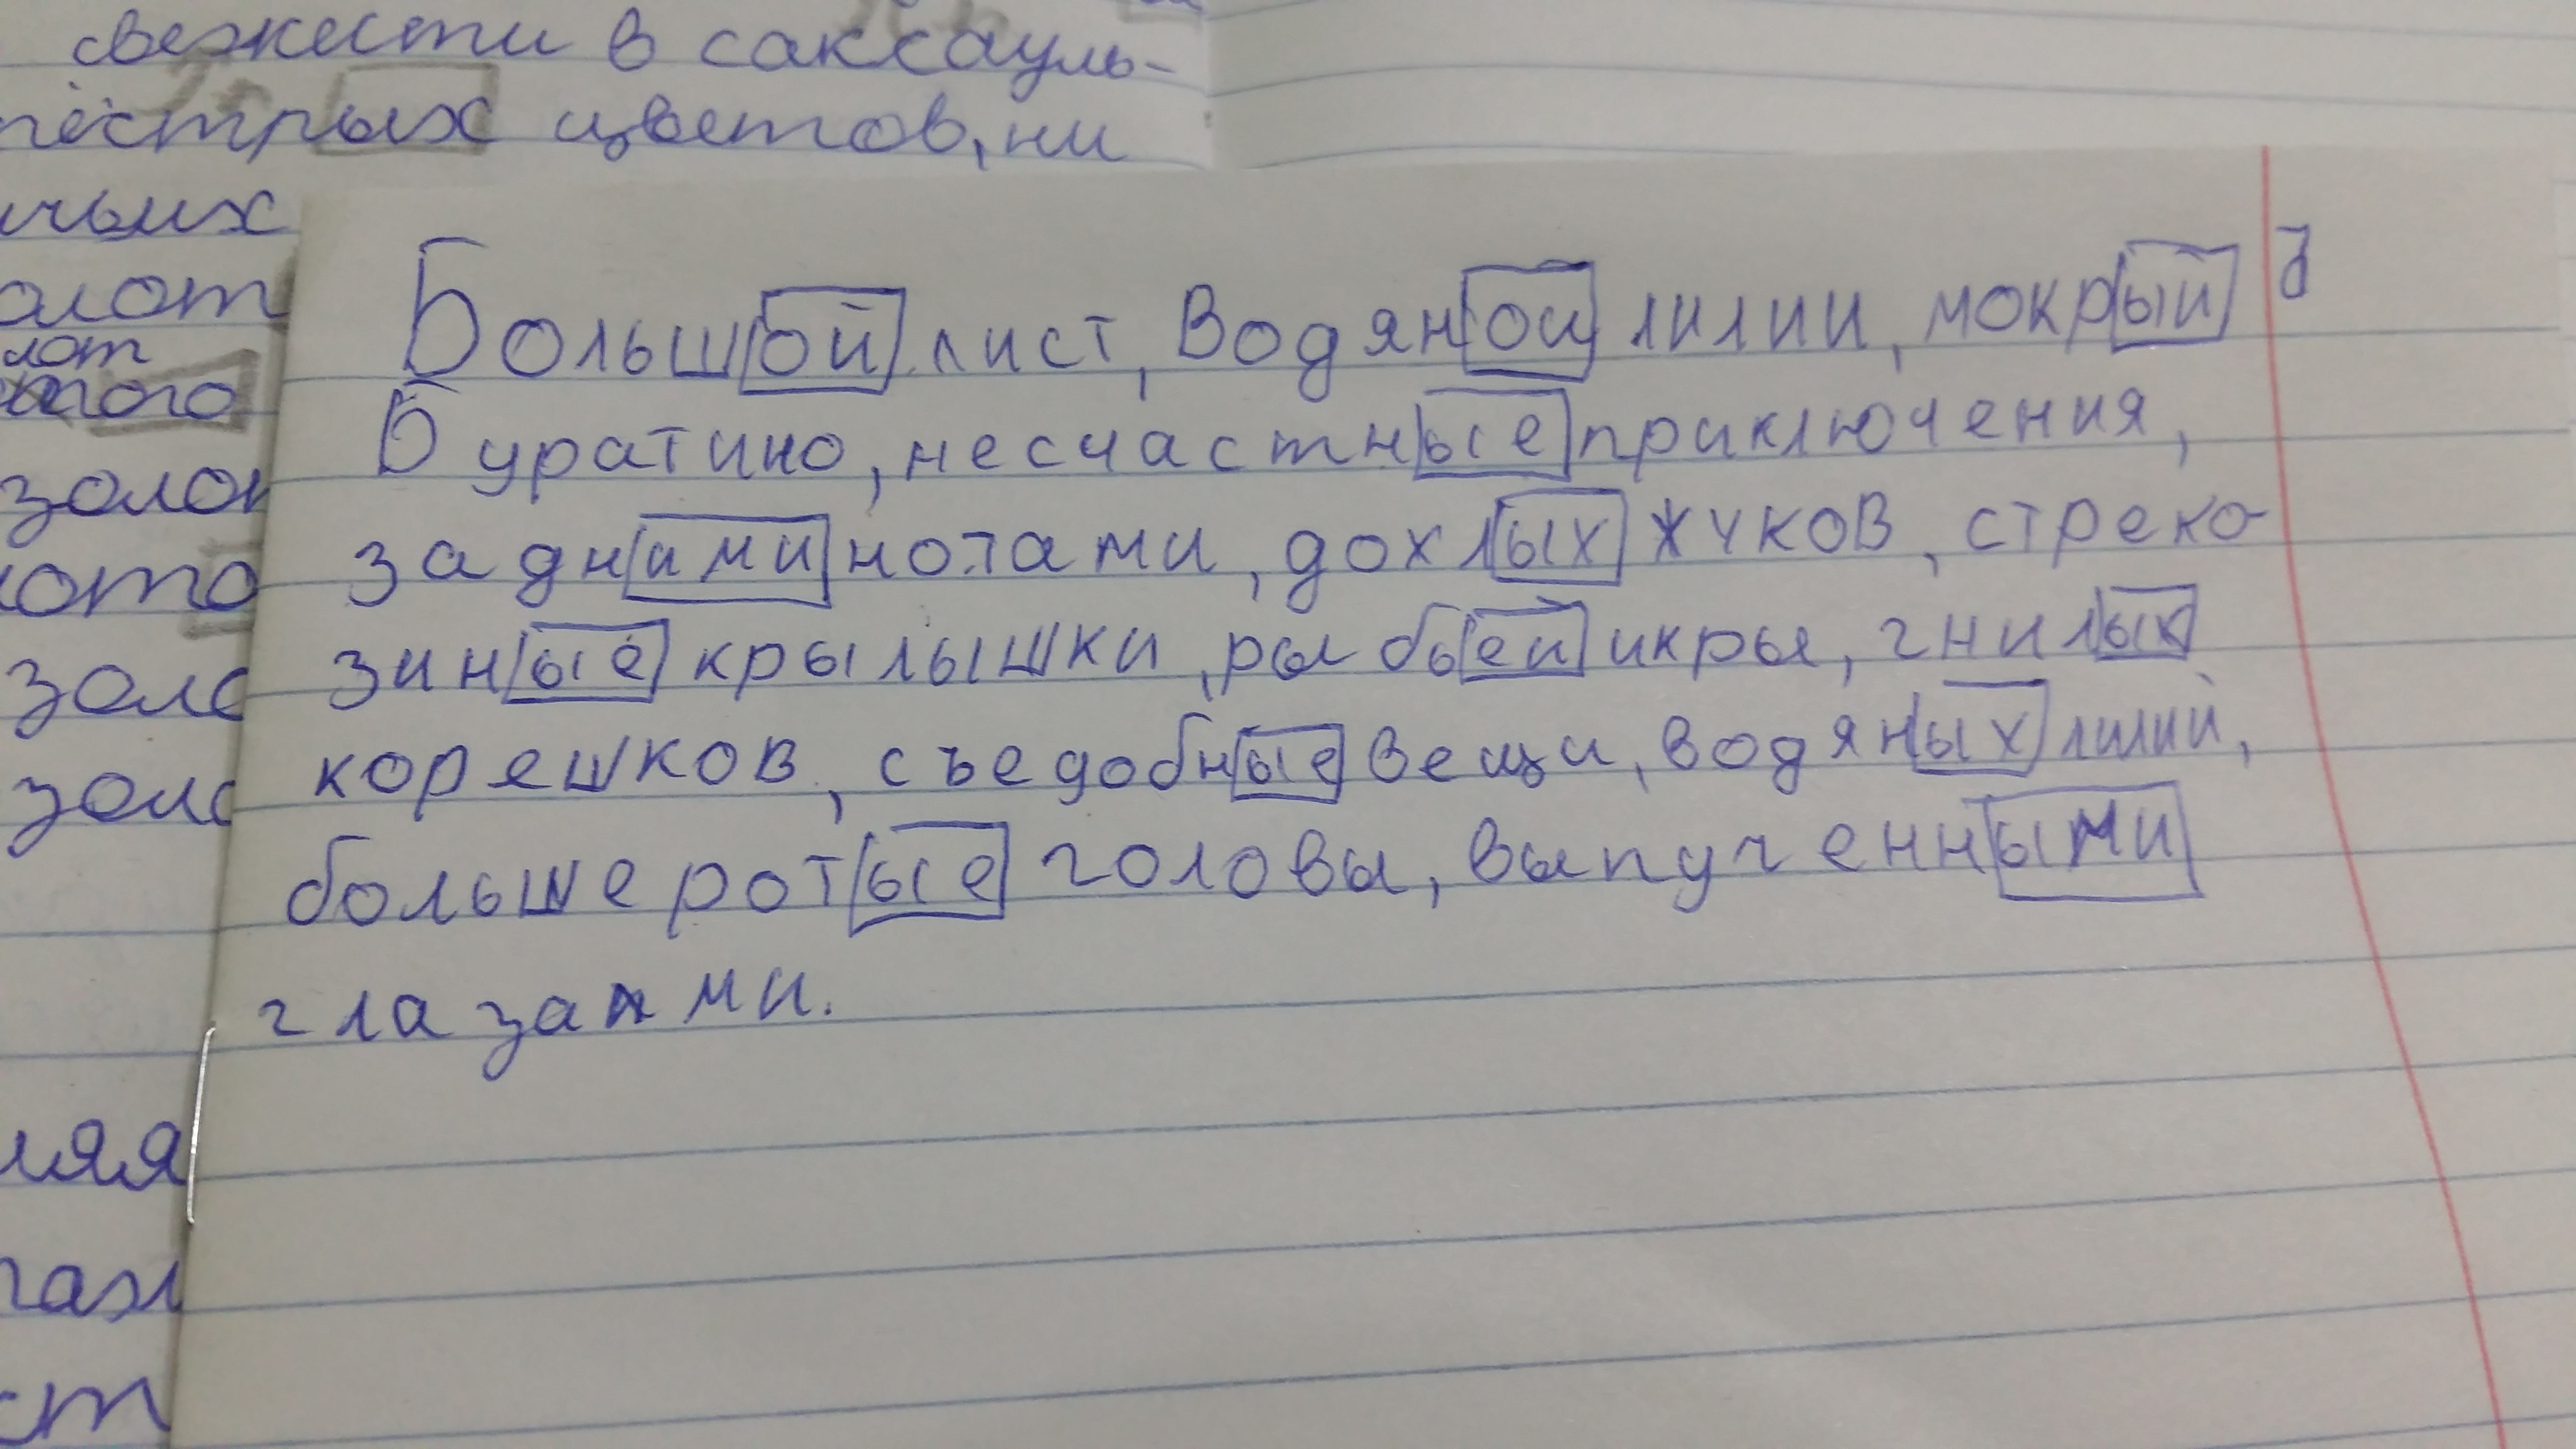 свежести в саксауль-
пёстрых цветов, ни
Большой лист, Водяной лилии, мокрый
Буратино, несчастные приключения,
задними нотами, дохлых жуков, стреко
зиные крылышки, рыбьей икры, гнилых
корешков, съедобные вещи, водяных лилий,
большеротые головы, выпученными
глазами.